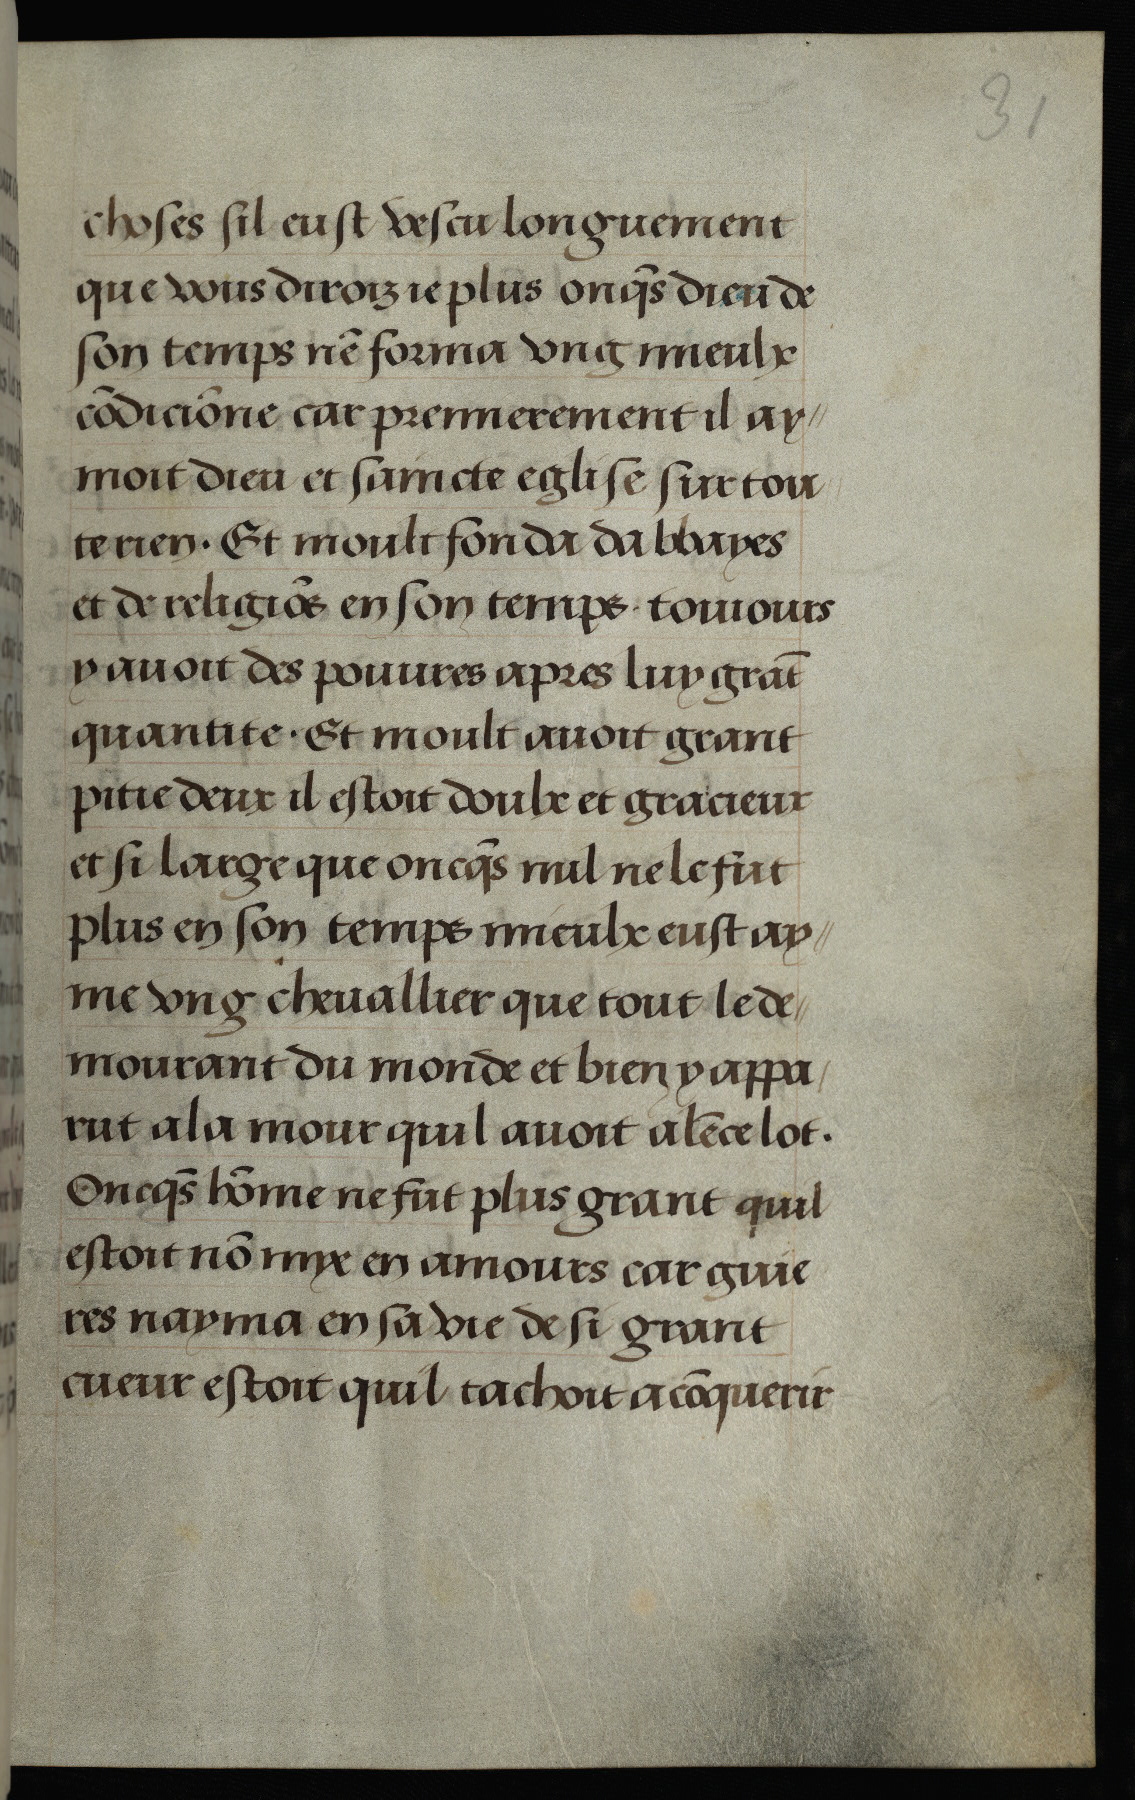 31
choses sil eust vescu longuement
que vous diroiz ie plus onq̃s dieu de
son temps nẽ forma vng mieulx
cõdiciõne car premierement il ay//
moit dieu et saincte eglise sur tou/
te rien. Et moult fonda dabbayes
et de religiõs en son temps. touiours
y auoit des pouures apres luy grãt
quantite. Et moult auoit grant
pitie deux il estoit doulx et gracieux
et si large que oncq̃s nul ne le fut
plus en son temps mieulx eust ay//
me vng cheuallier que tout le de//
mourant du monde et bien y appa/
rut a la mour quil auoit a lẽcelot.
Oncq̃s hõme ne fut plus grant quil
estoit nõ mye en amours car guie
res nayma en sa vie de si grant
cueur estoit quil tachoit a cõquerir